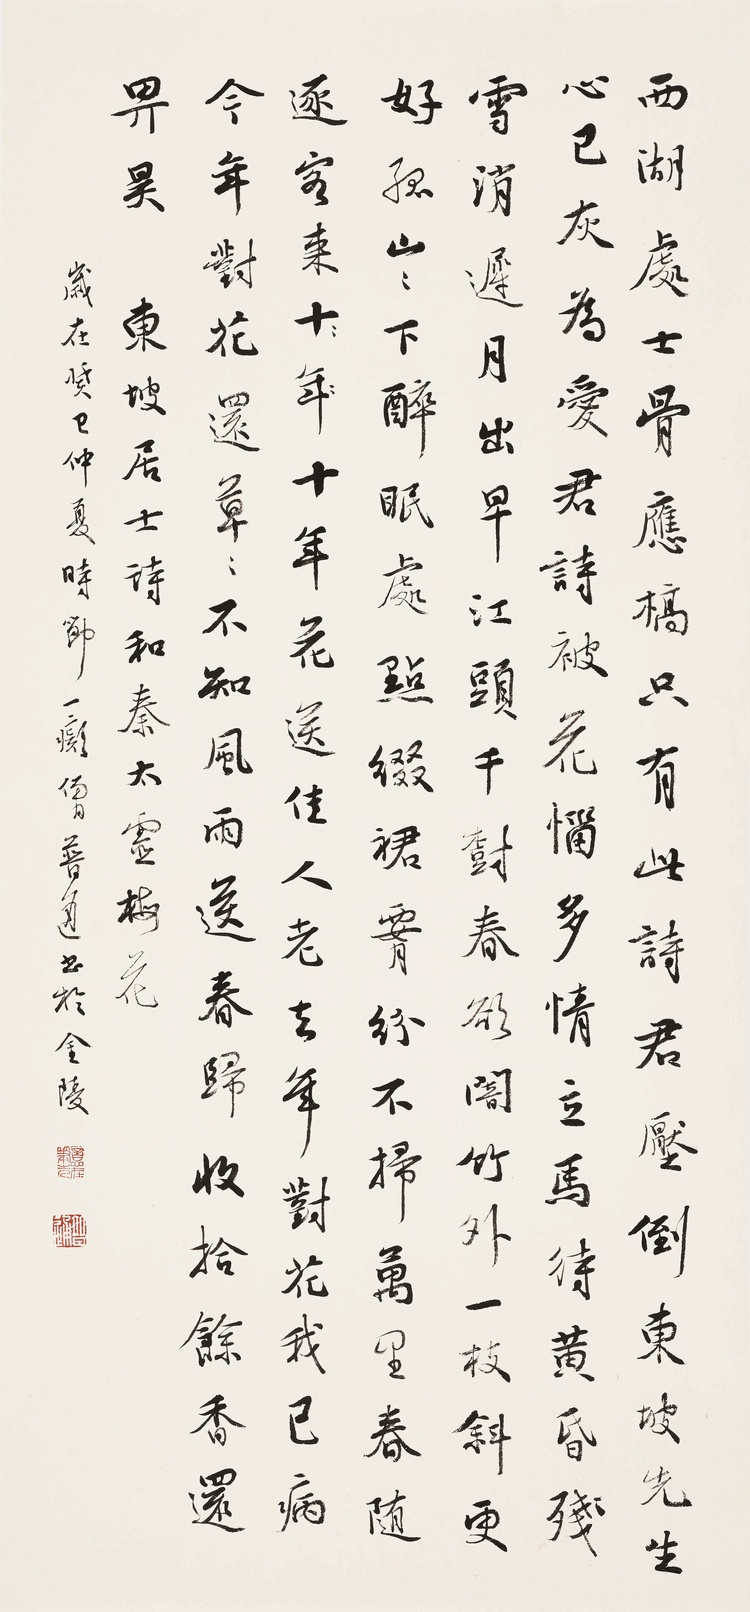 西湖處士骨應槁只有此詩君壓倒東坡先生
心已灰為愛君詩被花惱多情立馬待黃昏殘
雪消遲月出早江頭千樹春欲闇竹外一枝斜更
好孤山〻下醉眠處點綴裙腰紛不掃萬里春隨
逐客來十年十年花送佳人老去年對花我已病
今年對花還草〻不知風雨送春歸收拾餘香還
畀昊 東坡居士詩和秦太虛梅花
歲在癸巳仲夏時節一癡僧普通書於金陵